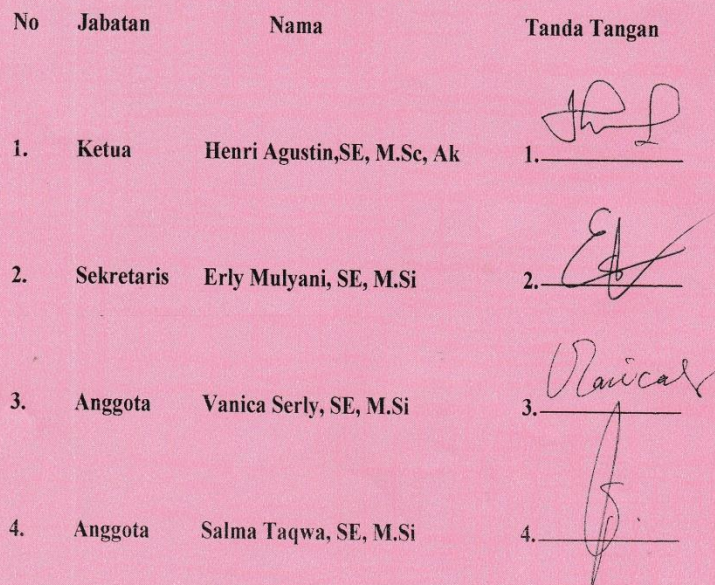 No Jabatan Nama Tanda Tangan
1. Ketua Henri Agustin,SE, M.Sc, Ak 1.
2. Sekretaris Erly Mulyani, SE, M.Si 2.
3. Anggota Vanica Serly, SE, M.Si 3. Vanicas
4. Anggota Salma Taqwa, SE, M.Si 4.